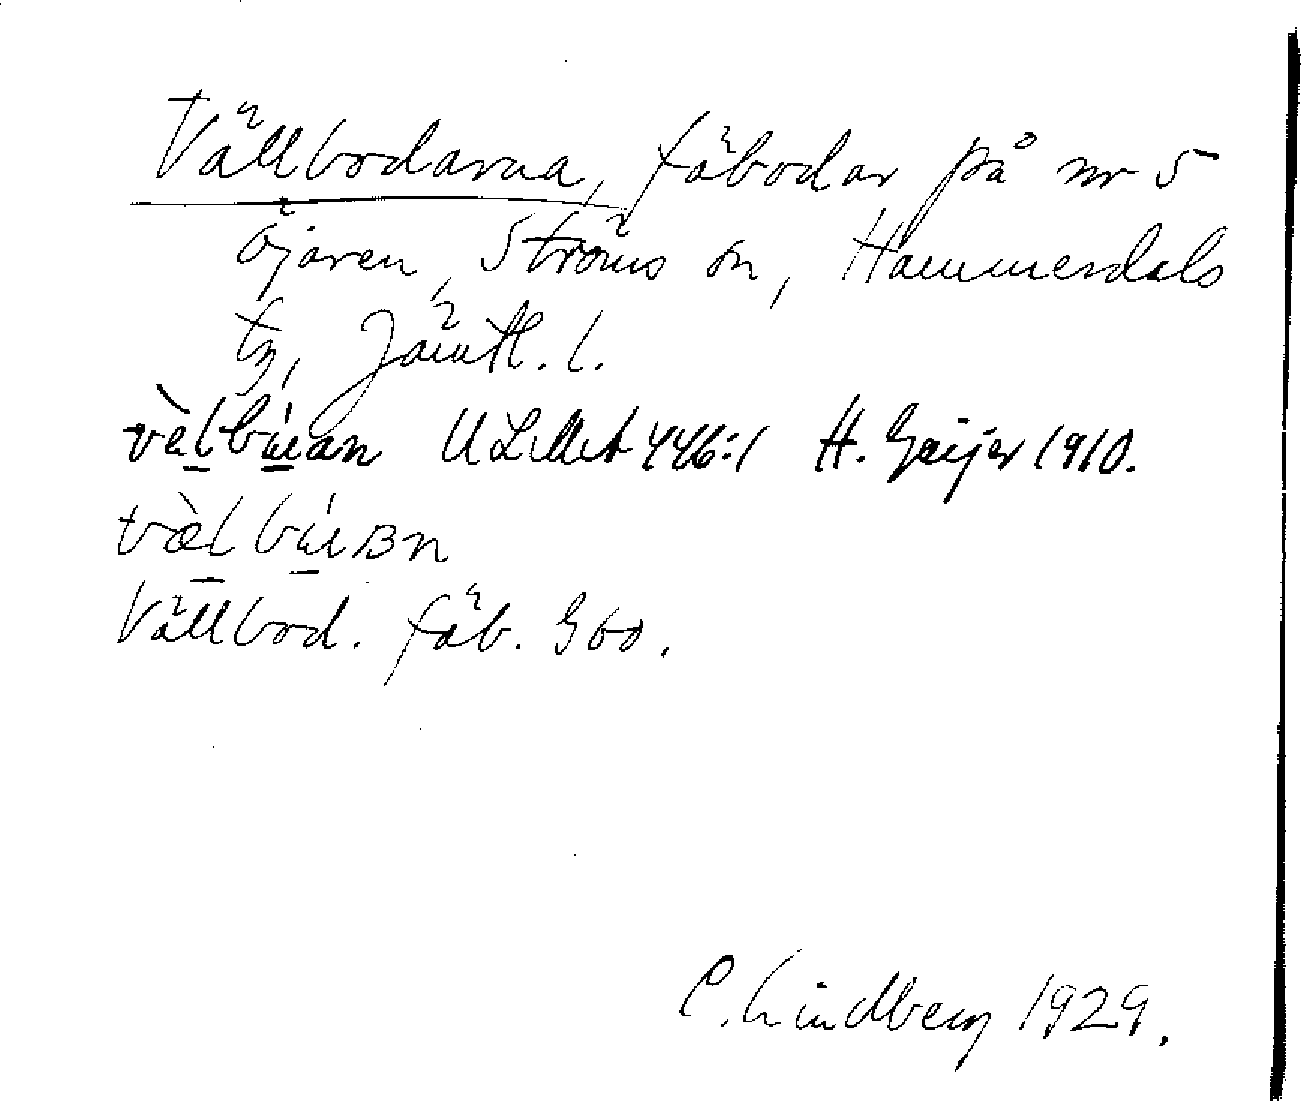 Vällbodarna, fäbodar på nr 5
Öjaren, Ströms sn, Hammerdals
tg, Jämtl. l.
vèlbúan ULMA 446:1 H. Geijer 1910.
vælbúBn
Vällbod. fäb. Gbo.
C. Lindberg 1929.